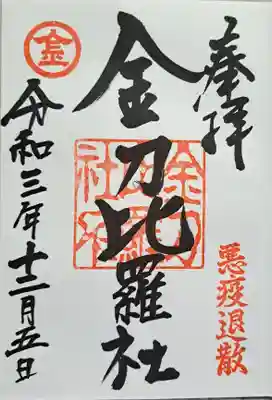 奉拝
悪疫退散
金刀比羅社
金
令和三年十二月五日